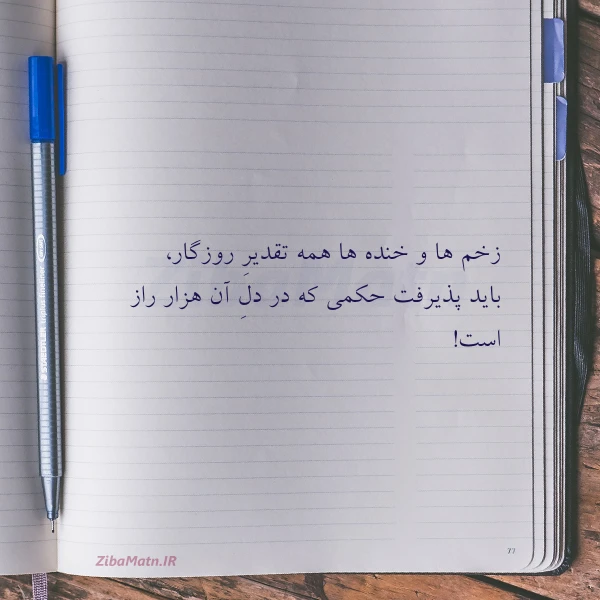 زخم ها و خنده ها همه تقدیرِ روزگار،
باید پذیرفت حکمی که در دلِ آن هزار راز
است!
ZibaMatn.IR
77